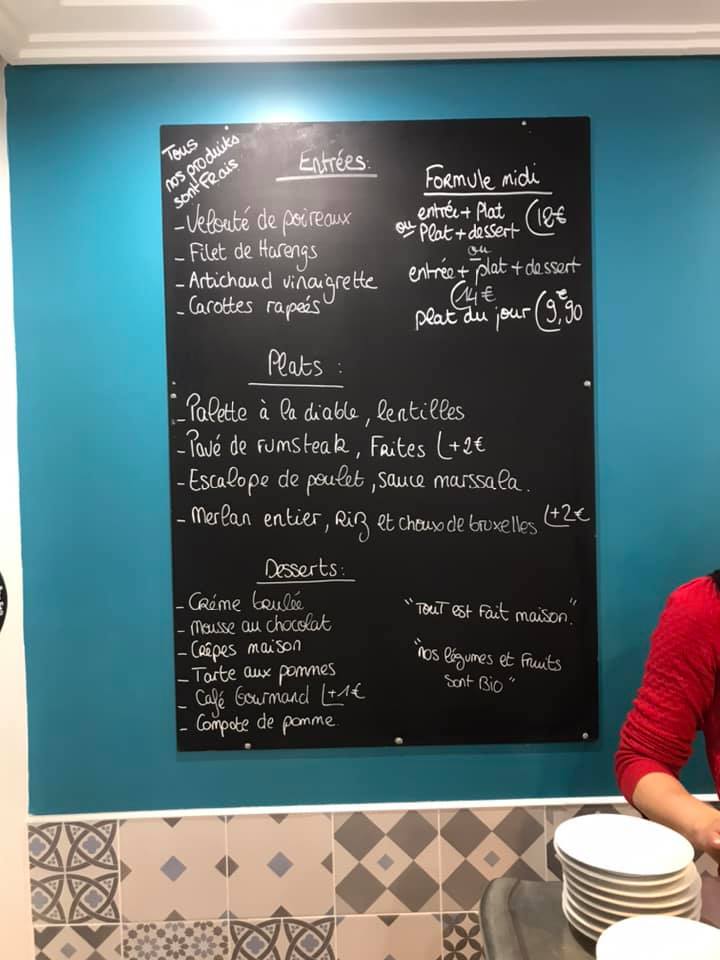 Tous
nos produits
sont Frais
Entrées:
- Velouté de poireaux
- Filet de Harengs
- Artichaud vinaigrette
- Carottes rapeés
Formule midi
entrée + Plat
ou Plat + dessert (12€
ou
entrée + plat + dessert
(14€
plat du jour (9,€90
Plats :
- Palette à la diable, lentilles
- Pavé de rumsteak, Frites (+2€
- Escalope de poulet, sauce marssala.
- Merlan entier, Riz et choux de bruxelles (+2€
Desserts:
- Créme brulée
- Mousse au chocolat
- Crêpes maison
- Tarte aux pommes
- Café Gourmand (+1€
- Compote de pomme.
"Tout est Fait maison."
"nos légumes et Fruits
sont Bio"